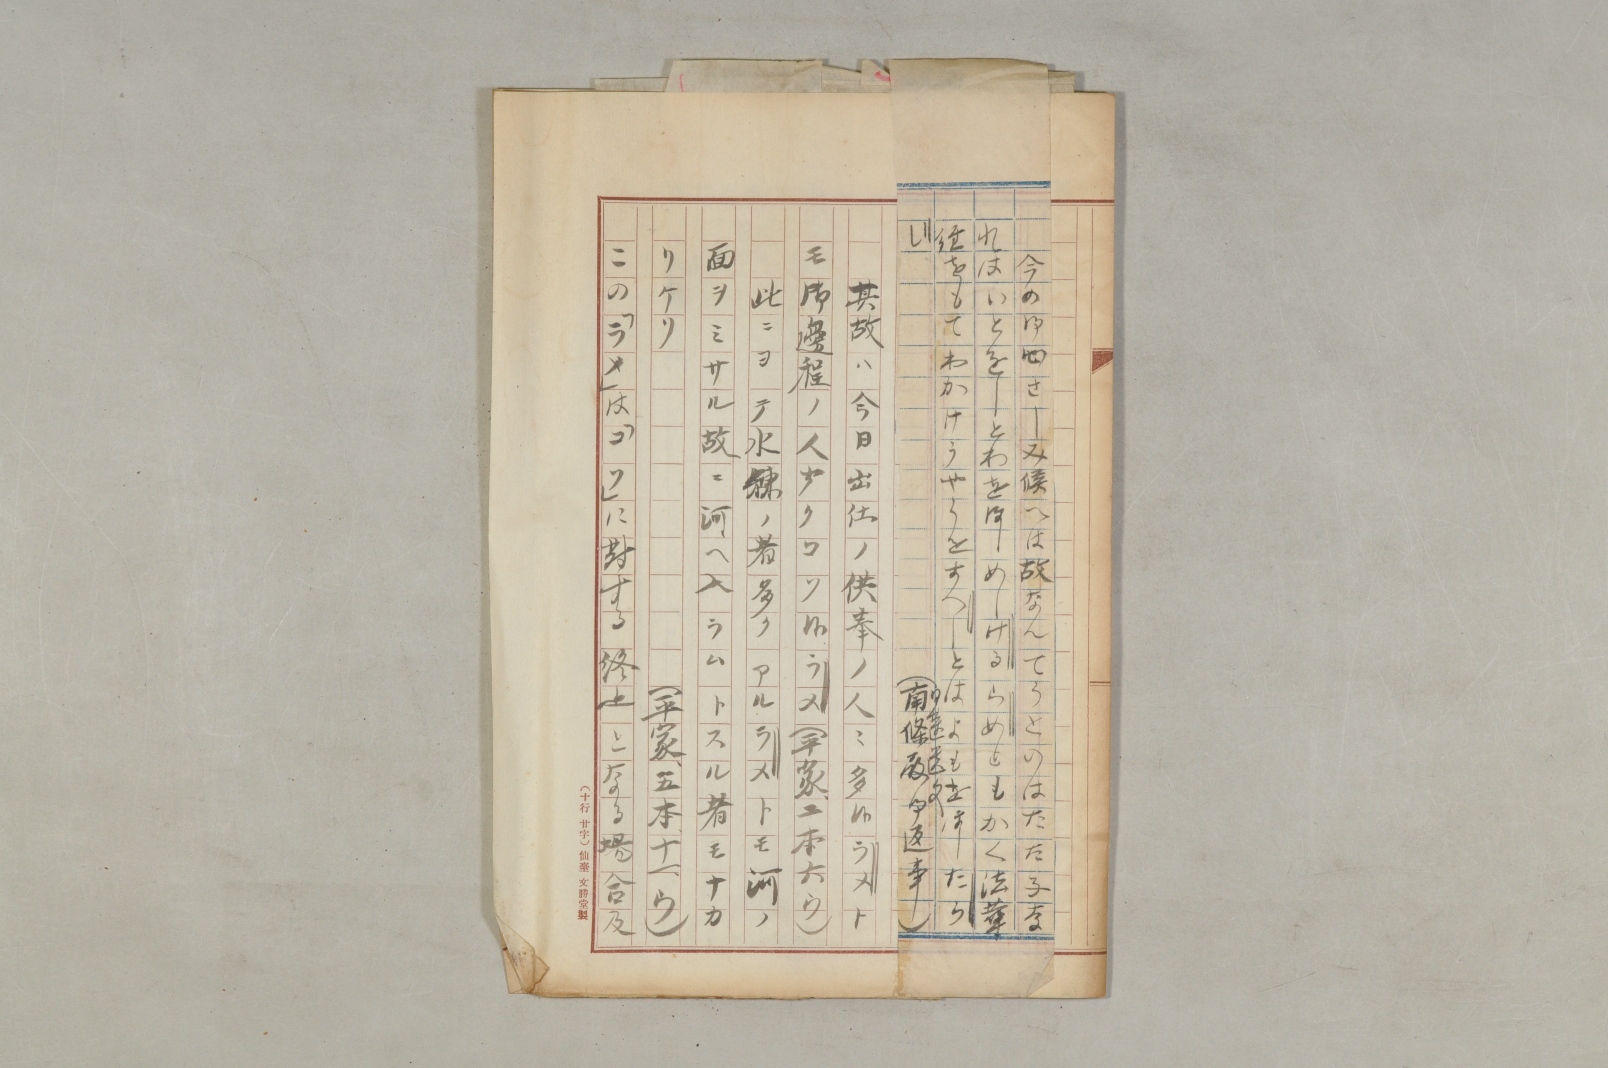 今のゆ面さしみ候へは故なんてうとのはたた子な
れはいとをしとわをほしめしけるらめともかく法華
経をもてわかけうやうをすへしとはよもをほしたら
じ
日蓮遺文
(南條殿御返事)
其故ハ今日出仕ノ供奉ノ人ミ多ルラメト
モ御邊程ノ人少クコソルラメ(平家二本六ウ)
此ニヨテ水練ノ者多クアルラメトモ河ノ
面ヲミサル故ニ河ヘ入ラムトスル者モナカ
リケリ
(平家五本十一ウ)
この「ラメ」は「コソ」に對する終止となる場合及
(十行 廿字) 仙臺 文勝堂製